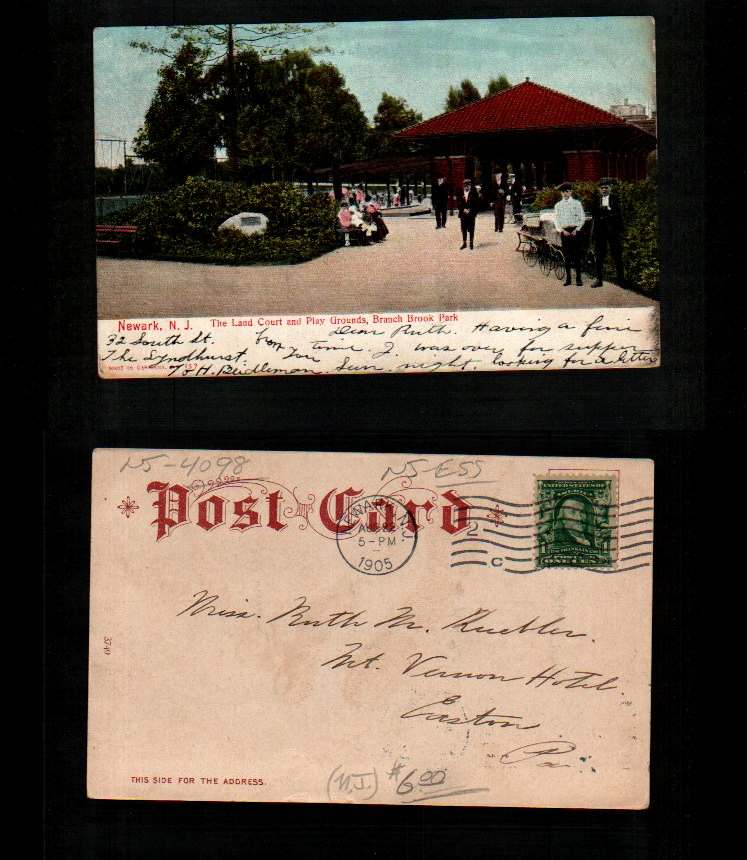 Newark, N. J. The Land Court and Play Grounds, Branch Brook Park
32 South St. from Dear Ruth. Having a fine
The Lyndhurst. You time I was over for supper
% H. Beidleman. Sun. night, looking for a letter
MADE IN GERMANY.
N5-4098 N5-ESS
Post Card
NEWARK, N.J.
AUG
5-PM
1905
2
C
UNITED STATES OF AMERICA
1 FRANKLIN 1
ONE CENT
Miss. Ruth M. Kuebler.
Mt. Vernon Hotel.
Easton
Pa.
3749
THIS SIDE FOR THE ADDRESS.
(N.J.) $6.00